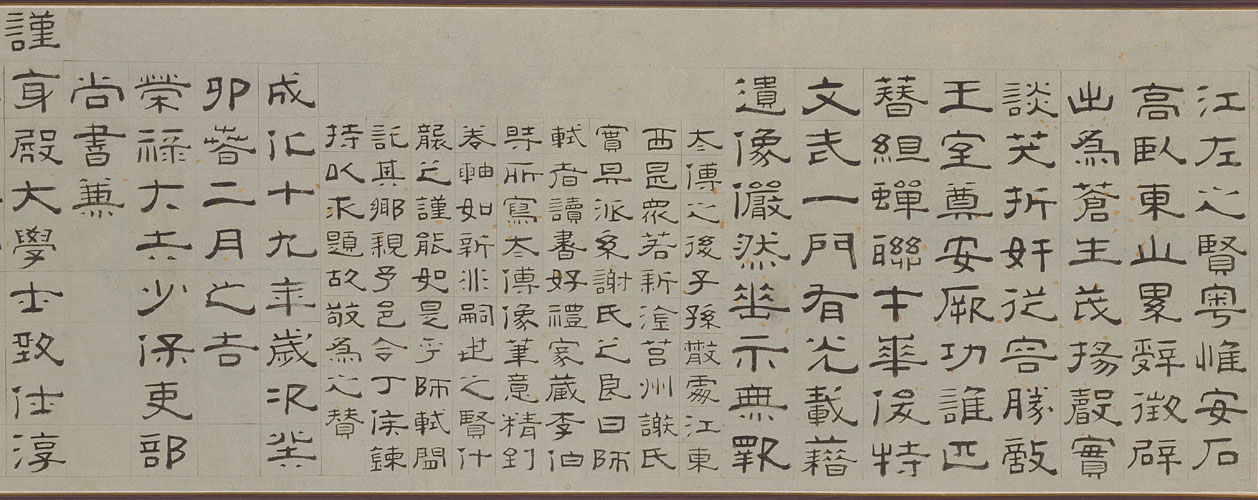 江左之賢粤惟安石
高臥東山累辭徵辟
出為蒼生茂揚聲實
談笑折奸從容勝敵
王室尊安厥功誰匹
簪組蟬聯才華俊特
文武一門有光載藉
遺像儼然垂示無斁
太傅之後子孫散處江東
西是衆若新淦莒州謝氏
實其派系謝氏之良曰師
軾者讀書好禮家藏李伯
時所寫太傅像筆意精到
卷軸如新非嗣世之賢什
襲之謹能如是乎師軾
託其鄉親予邑令丁侯鍊
持以求題故敬為之贊
成化十九年歲次癸
卯春二月之吉
榮祿大夫少保吏部
尚書兼
謹身殿大學士致仕淳